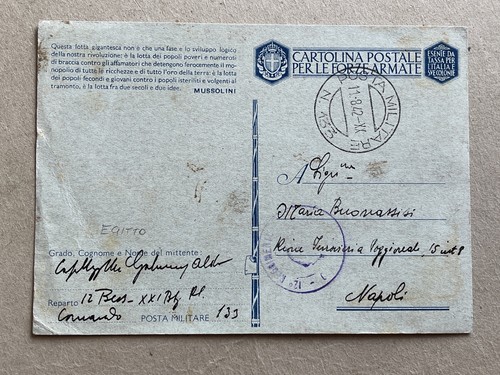 Questa lotta gigantesca non è che una fase e lo sviluppo logico
della nostra rivoluzione: è la lotta dei popoli poveri e numerosi
di braccia contro gli affamatori che detengono ferocemente il mo-
nopolio di tutte le ricchezze e di tutto l'oro della terra: è la lotta
dei popoli fecondi e giovani contro i popoli isteriliti e volgenti al
tramonto, è la lotta fra due secoli e due idee.
MUSSOLINI
EGITTO
Grado, Cognome e Nome del mittente:
Reparto 12 Bers - XXI Btg
Comando POSTA MILITARE 133
CARTOLINA POSTALE
PER LE FORZE ARMATE
ESENTE DA
TASSA PER
L'ITALIA
E SVE COLONIE
POSTA MILITARE
11-8-42-XX
N. 133
Maria Buonassisi
Rione Ferroviario Poggioreale, 15 int 8
Napoli